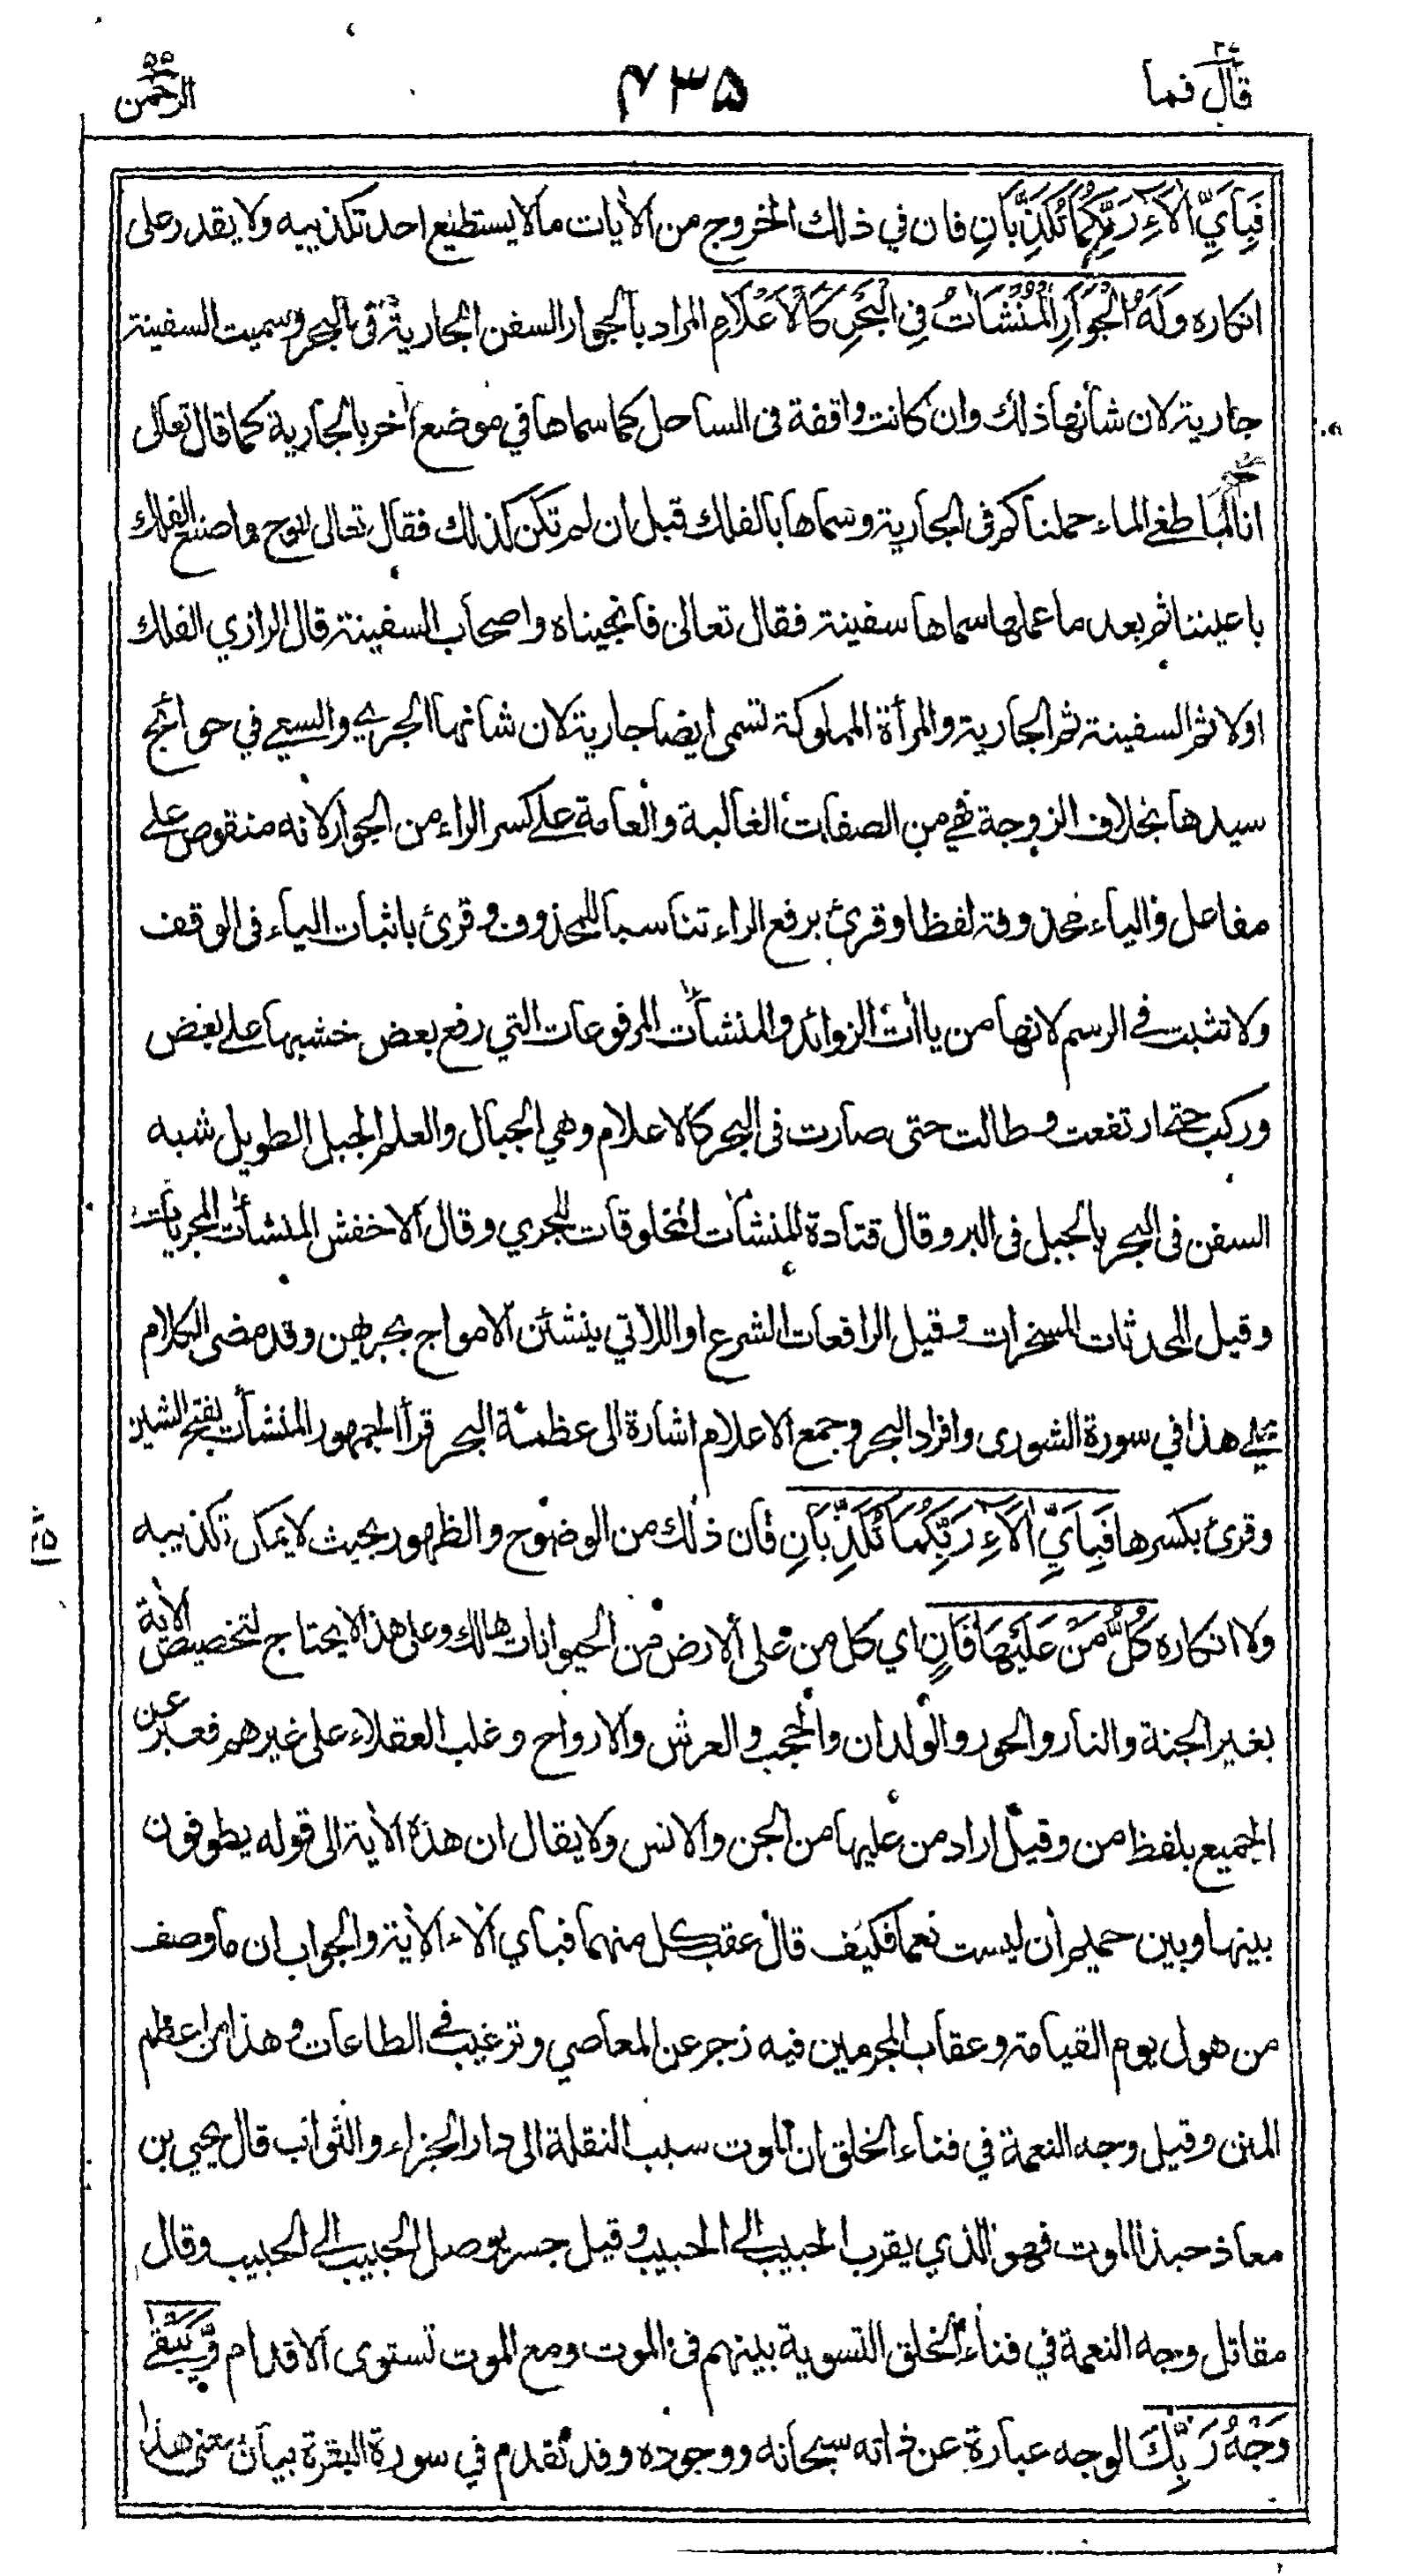 قال فما ٢٧
٤٣٥
الرحمن ٥٥
فَبِأَيِّ آلَاءِ رَبِّكُمَا تُكَذِّبَانِ فان في ذلك الخروج من الآيات ما لا يستطيع احد تكذيبه ولا يقدر على
انكاره وَلَهُ الْجَوَارِ الْمُنْشَآتُ فِي الْبَحْرِ كَالْأَعْلَامِ المراد بالجوار السفن الجارية في البحر وسميت السفينة
جارية لان شأنها ذلك وان كانت واقفة في الساحل كما سماها في موضع آخر بالجارية كما قال تعالى
انا لما طغى الماء حملناكم في الجارية وسماها بالفلك قبل ان لم تكن كذلك فقال تعالى لنوح واصنع الفلك
باعيننا ثم بعد ما عملها سماها سفينة فقال تعالى فانجيناه واصحاب السفينة قال الرازي الفلك
اولا ثم السفينة ثم الجارية والمرأة المملوكة تسمى ايضا جارية لان شانها الجري والسعي في حوائج
سيدها بخلاف الزوجة فهي من الصفات الغالبة والعامة على كسر الراء من الجوار لانه منقوص على
مفاعل والياء محذوفة لفظا وقرئ برفع الراء تناسيا للمحذوف وقرئ باثبات الياء في الوقف
ولا تثبت في الرسم لانها من ياآت الزوائد والمنشآت المرفوعات التي رفع بعض خشبها على بعض
وركب حتى ارتفعت وطالت حتى صارت في البحر كالاعلام وهي الجبال والعلم الجبل الطويل شبه
السفن في البحر بالجبل في البر وقال قتادة المنشآت المخلوقات للجري وقال الاخفش المنشآت المجريات
وقيل المحدثات المسخرات وقيل الرافعات الشرع او اللاتي ينشئن الامواج بجريهن وقد مضى الكلام
على هذا في سورة الشورى وافراد البحر وجمع الاعلام اشارة الى عظمة البحر قرأ الجمهور المنشآت بفتح الشين
وقرئ بكسرها فَبِأَيِّ آلَاءِ رَبِّكُمَا تُكَذِّبَانِ فان ذلك من الوضوح والظهور بحيث لا يمكن تكذيبه
ولا انكاره كُلُّ مَنْ عَلَيْهَا فَانٍ اي كل من على الارض من الحيوانات هالك وعلى هذا لا يحتاج لتخصيص الآية
بغير الجنة والنار والحور والولدان والحجب والعرش والارواح وغلب العقلاء على غيرهم فعبر عن
الجميع بلفظ من وقيل اراد من عليها من الجن والانس ولا يقال ان هذه الآية الى قوله يطوفون
بينها وبين حميم آن ليست نعما فكيف قال عقب كل منهما فباي آلاء الآية والجواب ان ما وصف
من هول يوم القيامة وعقاب المجرمين فيه زجر عن المعاصي وترغيب في الطاعات وهذا من اعظم
المنن وقيل وجه النعمة في فناء الخلق ان الموت سبب النقلة الى دار الجزاء والثواب قال يحيى بن
معاذ حبذا الموت فهو الذي يقرب الحبيب الى الحبيب وقيل جسر يوصل الحبيب الى الحبيب وقال
مقاتل وجه النعمة في فناء الخلق التسوية بينهم في الموت ومع الموت تستوى الاقدام وَّيَبْقَى
وَجْهُ رَبِّكَ الوجه عبارة عن ذاته سبحانه ووجوده وقد تقدم في سورة البقرة بيان معنى هذا